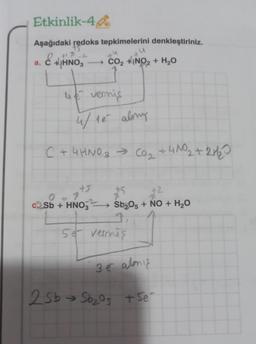 Etkinlik-4
Aşağıdaki redoks tepkimelerini denkleştiriniz.
0 +1 +5 -2 +4 +4
a. C + 4HNO₃ → CO₂ + 4NO₂ + H₂O
4e⁻ vermiş
4/ 1e⁻ almış
C + 4HNO₃ → CO₂ + 4NO₂ + 2H₂O
0 +5 +5 +2
c. 2Sb + HNO₃ → Sb₂O₅ + NO + H₂O
5e⁻ vermiş
3e⁻ almış
2Sb → Sb₂O₅ + 5e⁻